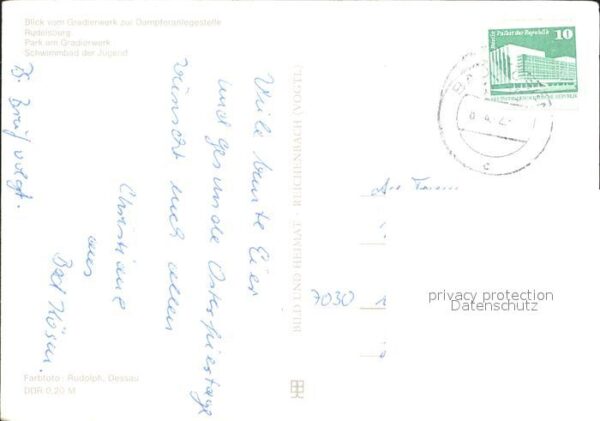 Blick vom Gradierwerk zur Dampferanlegestelle
Rudelsburg
Park am Gradierwerk
Schwimmbad der Jugend
Viele bunte Eier
und gesunde Osterfeiertage
wünscht euch allen
Christiane
aus
Bad Kösen.
Ps. Brief folgt.
BILD UND HEIMAT · REICHENBACH (VOGTL)
Berlin, Palast der Republik
10
An Familie
7030
privacy protection
Datenschutz
Farbfoto: Rudolph, Dessau
DDR 0,20 M